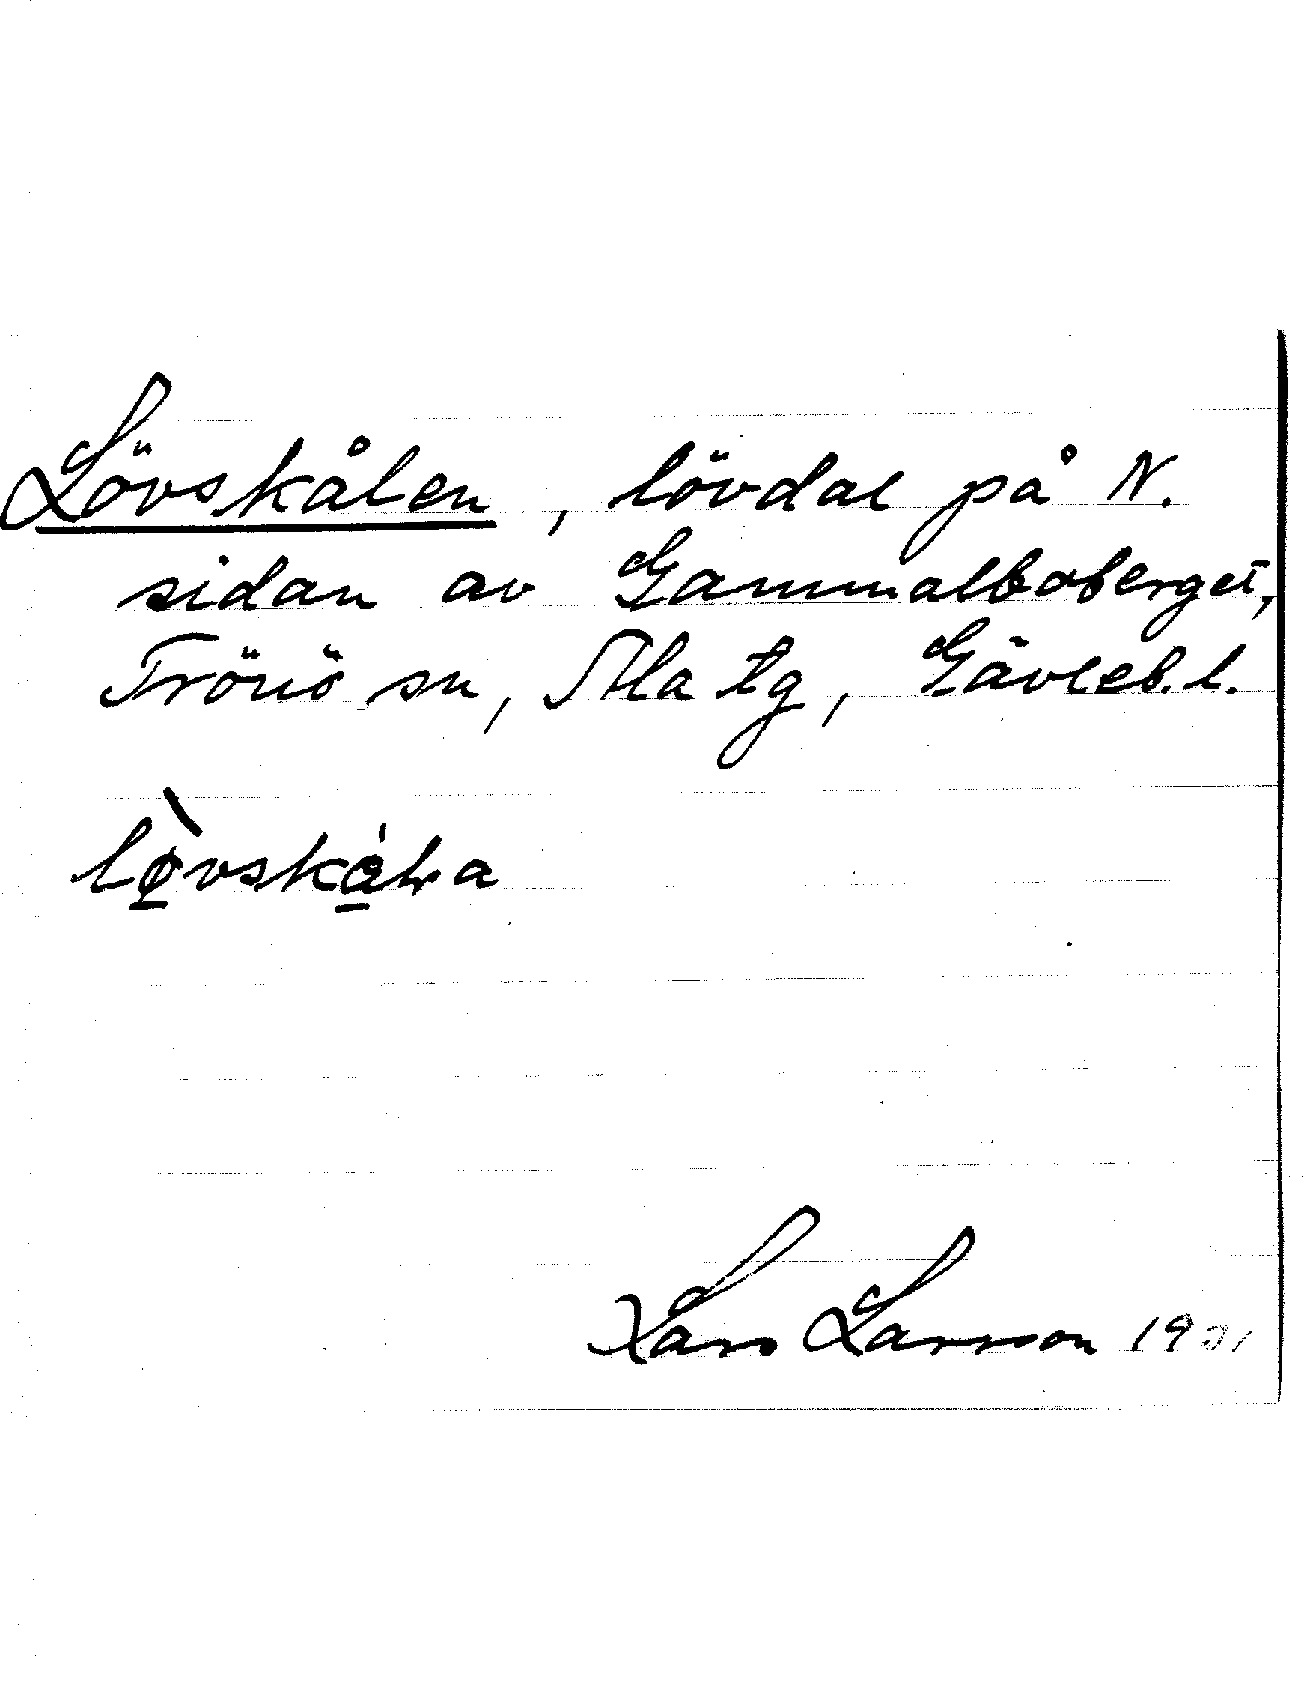 Lövskålen, lövdal på N.
sidan av Gammalboberget,
Trönö sn, Ala tg, Gävleb. l.
Lars Larsson